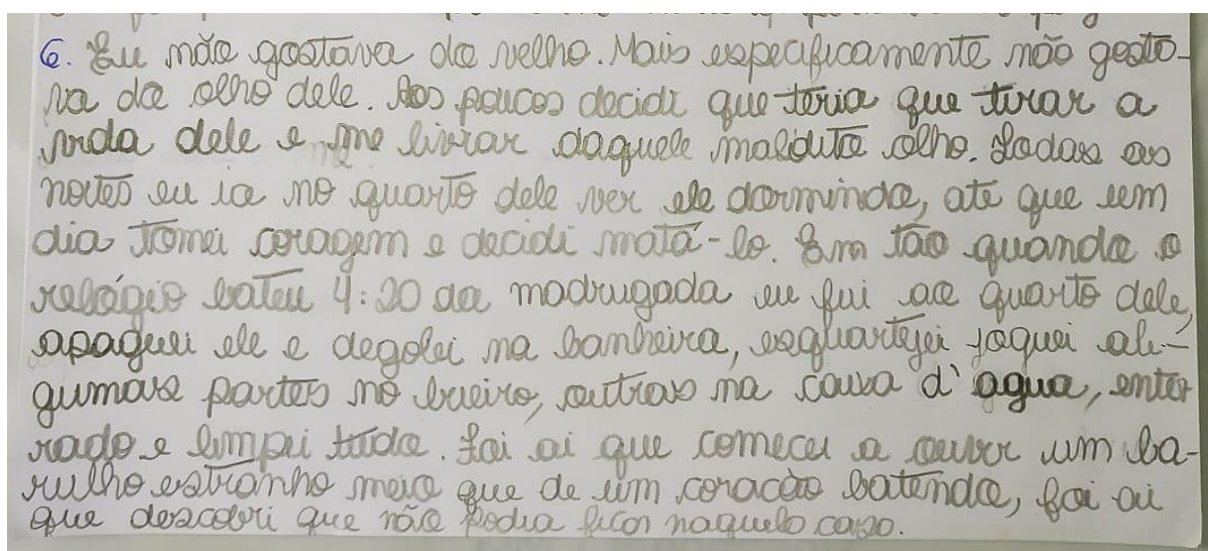 6. Eu não gostava do velho. Mais especificamente não gosta-
va do olho dele. Aos poucos decidi que teria que tirar a
vida dele e me livrar daquele maldito olho. Todas as
noites eu ia no quarto dele ver ele dormindo, ate que um
dia tomei coragem e decidi matá-lo. Em tão quando o
relógio bateu 4:20 da madrugada eu fui ao quarto dele,
apaguei ele e degolei na banheira, esquartejei joguei al-
gumas partes no bueiro, outras na caixa d'agua, enter
rado e limpei tudo. Foi ai que comecei a ouvir um ba-
rulho estranho meio que de um coração batendo, foi ai
que descobri que não podia ficar naquela casa.